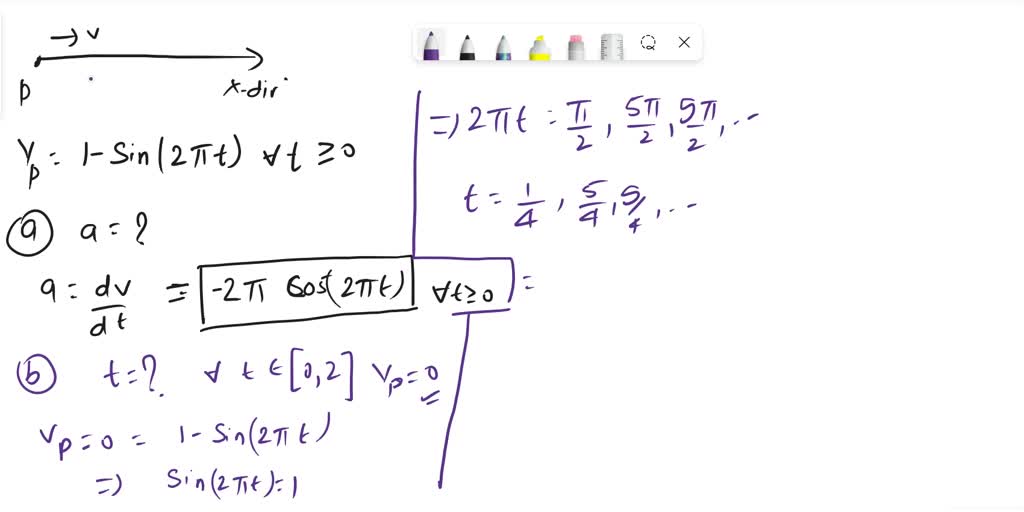 → v
p x-dir
v_p = 1 - Sin(2πt) ∀ t ≥ 0
(a) a = ?
a = dv/dt = -2π Cos(2πt) ∀t≥0
(b) t = ? ∀ t ∈ [0,2] v_p = 0
v_p = 0 = 1 - Sin(2πt)
=) Sin(2πt) = 1
=) 2πt = π/2, 5π/2, 5π/2, ...
t = 1/4, 5/4, 5/4, ...
=